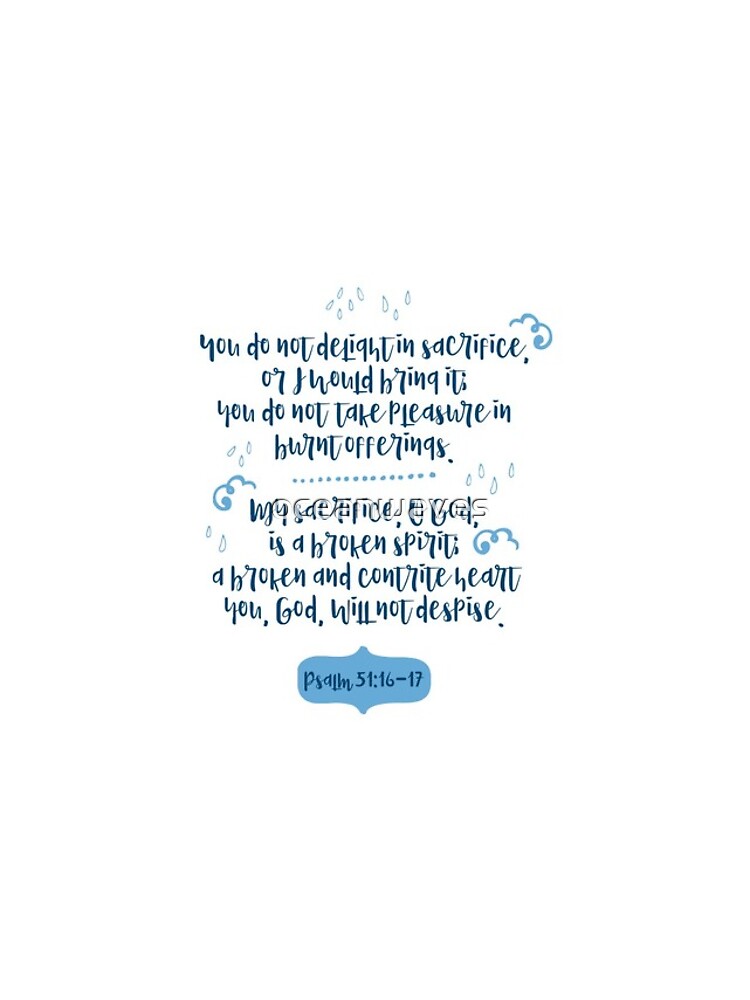 You do not delight in sacrifice,
or I would bring it;
you do not take pleasure in
burnt offerings.
My sacrifice, O God,
oceanwaves
is a broken spirit;
a broken and contrite heart
You, God, will not despise.
Psalm 51:16-17